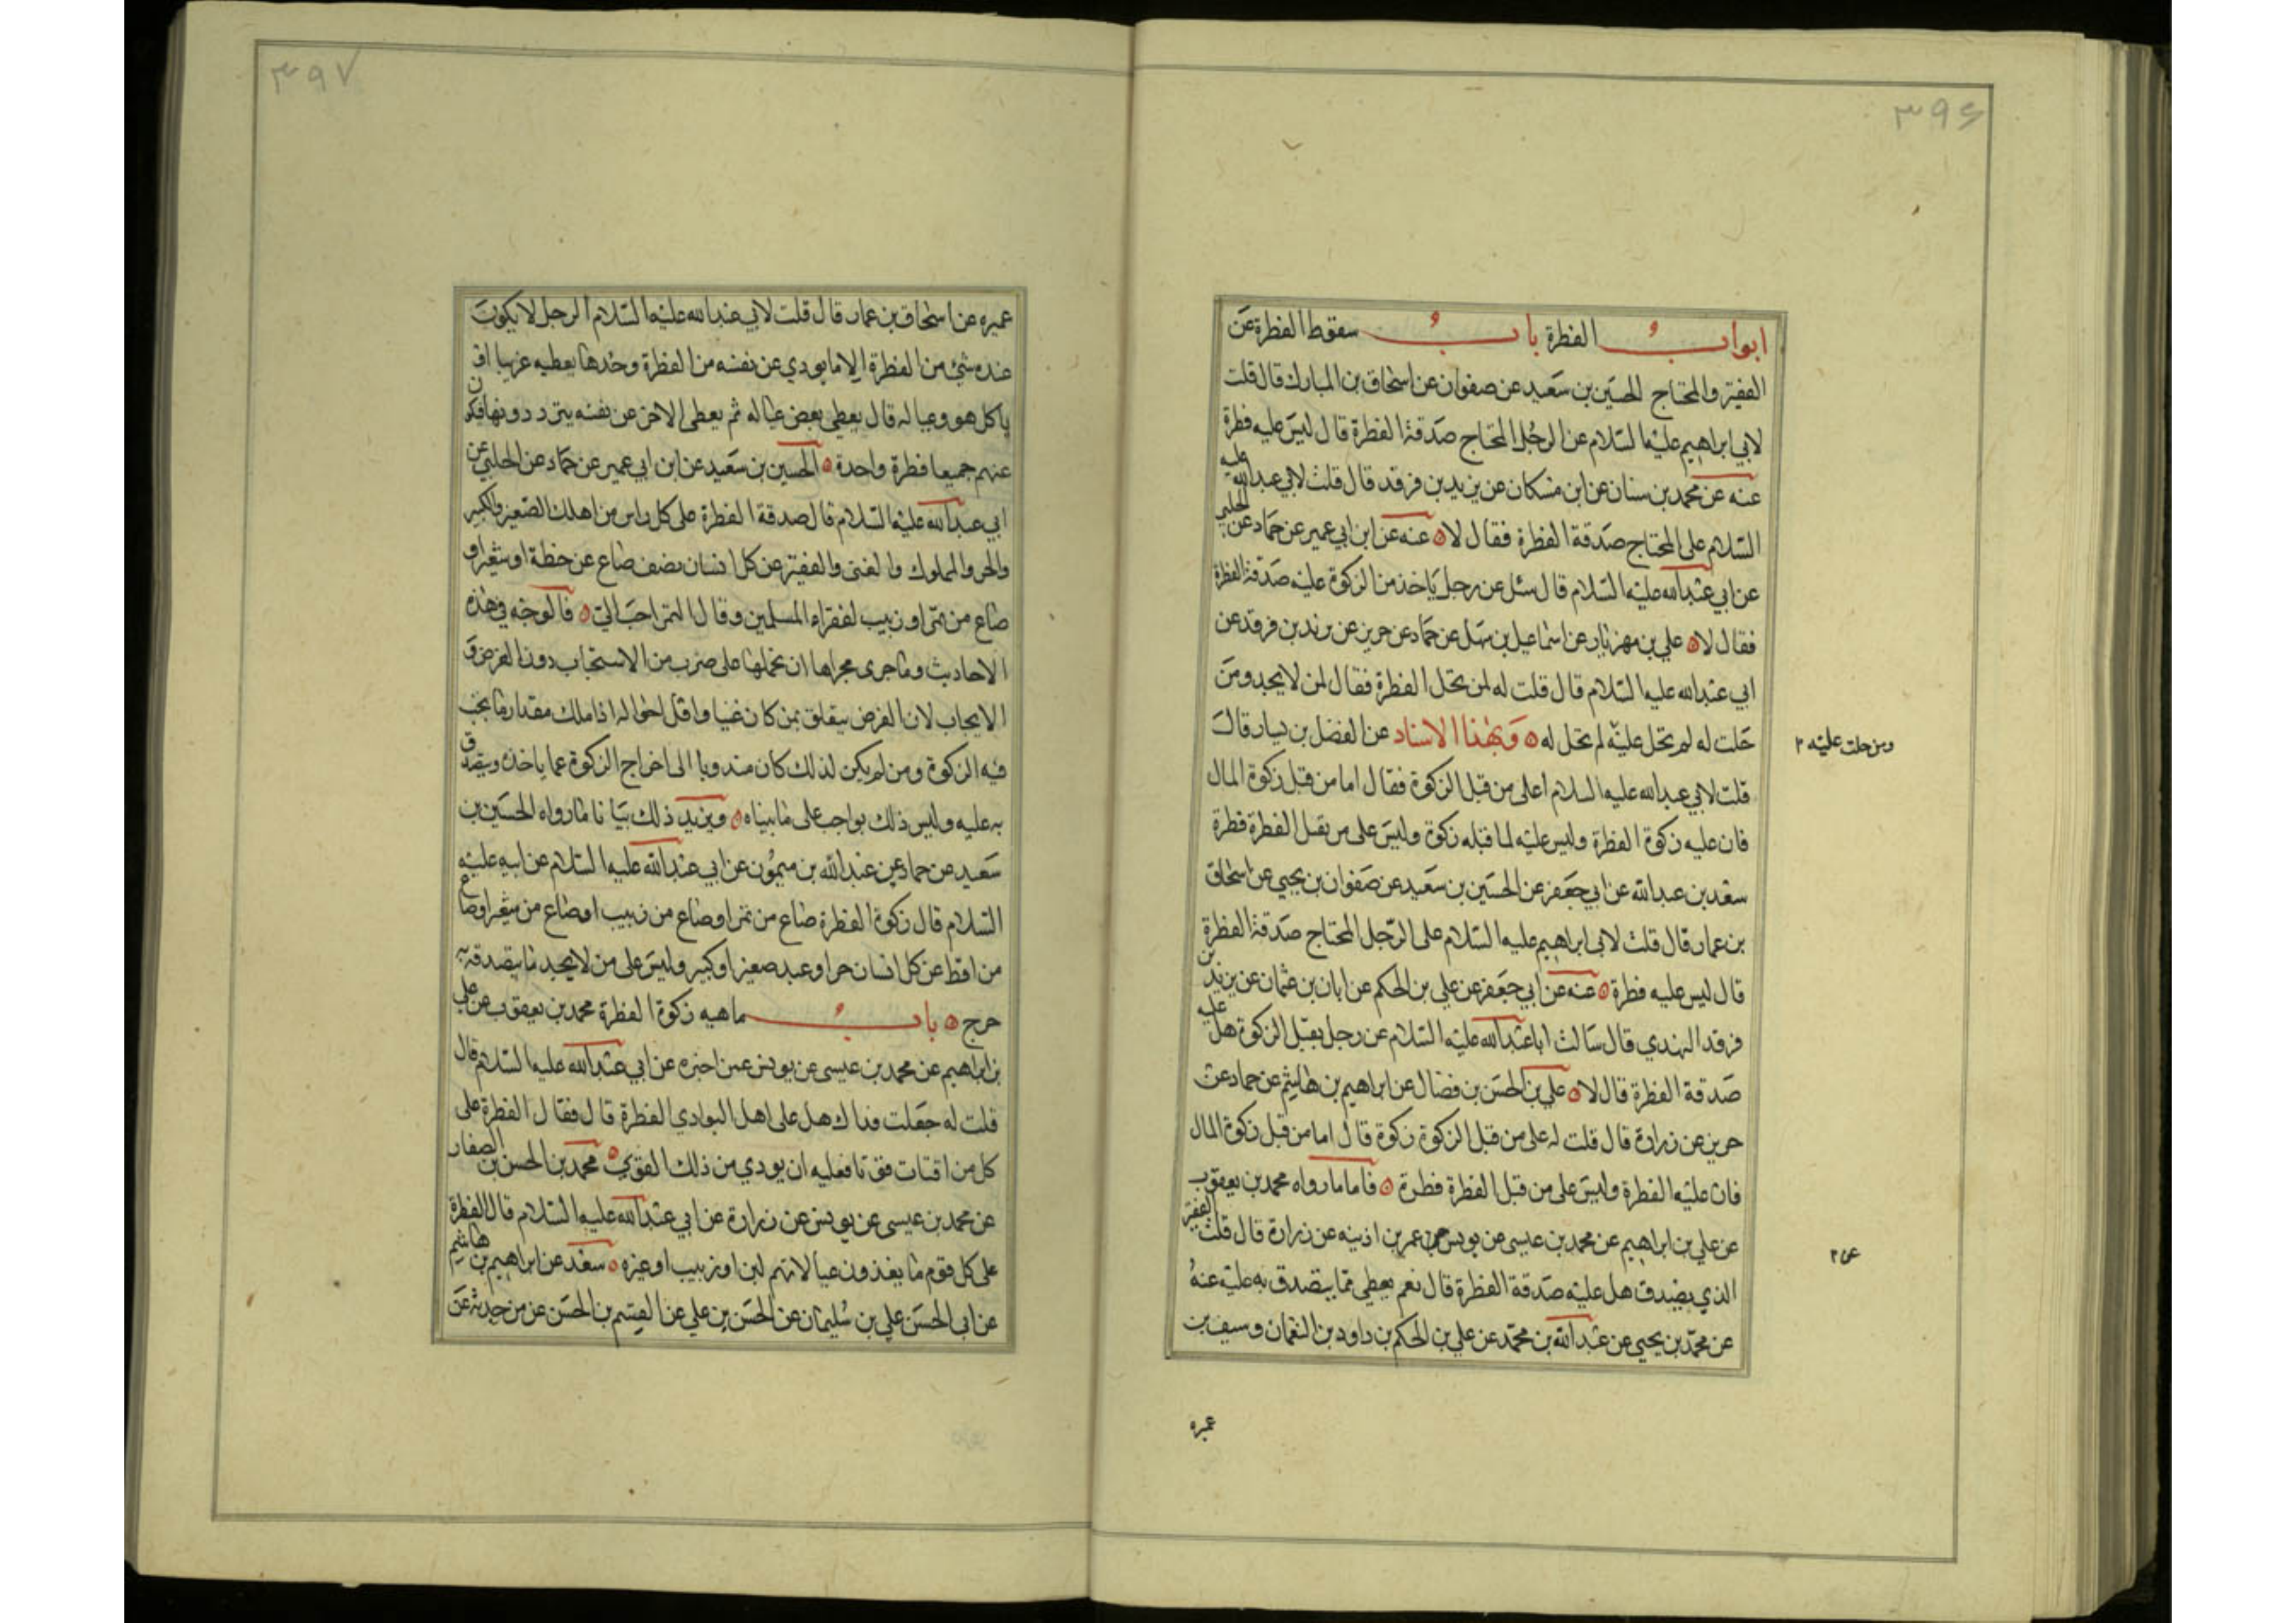 ٣٩۶
ابواب الفطرة باب سقوط الفطرة عن
الفقير والمحتاج الحسين بن سعيد عن صفوان عن اسحاق بن المبارك قال قلت
لابي ابراهيم عليه السلام عن الرجل المحتاج صدقة الفطرة قال ليس عليه فطرة
عنه عن محمد بن سنان عن ابن مسكان عن يزيد بن فرقد قال قلت لابي عبدالله عليه
السلام على المحتاج صدقة الفطرة فقال لا ٥ عنه عن ابن ابي عمير عن حماد عن الحلبي
عن ابي عبدالله عليه السلام قال سئل عن رجل ياخذ من الزكوة عليه صدقة الفطرة
فقال لا ٥ علي بن مهزيار عن اسماعيل بن سهل عن حماد عن حريز عن يزيد بن فرقد عن
ابي عبدالله عليه السلام قال قلت له لمن تحل الفطرة فقال لمن لا يجد ومن
حلت له لم تحل عليه لم تحل له ٥ وبهذا الاسناد عن الفضل بن يسار قال
ومن حلت عليه ٢
قلت لابي عبدالله عليه السلام اعلى من قبل الزكوة فقال اما من قبل زكوة المال
فان عليه زكوة الفطرة وليس عليه لما قبله زكوة وليس على من يقبل الفطرة فطرة
سعد بن عبدالله عن ابي جعفر عن الحسين بن سعيد عن صفوان بن يحيى عن اسحاق
بن عمار قال قلت لابى ابراهيم عليه السلام على الرجل المحتاج صدقة الفطرة
قال ليس عليه فطرة ٥ عنه عن ابي جعفر عن علي بن الحكم عن ابان بن عثمان عن يزيد بن
فرقد النهدي قال سالت ابا عبدالله عليه السلام عن رجل يقبل الزكوة هل عليه
صدقة الفطرة قال لا ٥ علي بن الحسن بن فضال عن ابراهيم بن هاشم عن حماد عن
حريز عن زرارة قال قلت له على من قبل الزكوة زكوة قال اما من قبل زكوة المال
فان عليه الفطرة وليس على من قبل الفطرة فطرة ٥ فاما ما رواه محمد بن يعقوب
عن علي بن ابراهيم عن محمد بن عيسى عن يونس عن عمر بن اذينه عن زرارة قال قلت الفقير
عن ٢
الذي يصدق هل عليه صدقة الفطرة قال نعم يعطي مما يتصدق به عليه عنه
عن محمد بن يحيى عن عبدالله بن محمد عن علي بن الحكم بن داود بن النعمان وسيف بن
عميره
٣٩٧
عميره عن اسحاق بن عمار قال قلت لابي عبدالله عليه السلام الرجل لا يكون
عنده شئ من الفطرة الا ما يودي عن نفسه من الفطرة وحدها يعطيه غريبا او
ياكل هو وعياله قال يعطي بعض عياله ثم يعطى الاخر عن نفسه يتردد ونها فيكون
عنهم جميعا فطرة واحدة ٥ الحسين بن سعيد عن ابن ابي عمير عن حماد عن الحلبي عن
ابي عبدالله عليه السلام قال صدقة الفطرة على كل راس من اهلك الصغير والكبير
والحر والمملوك والغنى والفقير عن كل انسان نصف صاع عن حنطة او شعير او
صاع من تمر او زبيب لفقراء المسلمين وقال التمر احب الي ٥ فالوجه في هذه
الاحاديث وما جرى مجراها ان نحملها على ضرب من الاستحباب دون الفرض و
الايجاب لان الفرض يتعلق بمن كان غنيا واقل احواله اذا ملك مقدار ما يجب
فيه الزكوة ومن لم يكن لذلك كان مندوبا الى اخراج الزكوة عما ياخذه ويتصدق
به عليه وليس ذلك بواجب على ما بيناه ٥ ويزيد ذلك بيانا ما رواه الحسين بن
سعيد عن حماد عن عبدالله بن ميمون عن ابي عبدالله عليه السلام عن ابيه عليه
السلام قال زكوة الفطرة صاع من تمر او صاع من زبيب او صاع من شعير او صاع
من اقط عن كل انسان حر او عبد صغير او كبير وليس على من لا يجد ما يتصدق به
حرج ٥ باب ماهيه زكوة الفطرة محمد بن يعقوب عن علي
بن ابراهيم عن محمد بن عيسى عن يونس عمن اخبره عن ابي عبدالله عليه السلام قال
قلت له جعلت فداك هل على اهل البوادي الفطرة قال فقال الفطرة على
كل من اقتات قوتا فعليه ان يودي من ذلك القوت ٥ محمد بن الحسن بن الصفار
عن محمد بن عيسى عن يونس عن زرارة عن ابي عبدالله عليه السلام قال الفطرة
على كل قوم ما يغذون عيالاتهم لبن او زبيب او غيره ٥ سعد عن ابراهيم بن هاشم
عن ابى الحسن علي بن سليمان عن الحسن بن علي عن القسم بن الحسن عن من حدثه عن